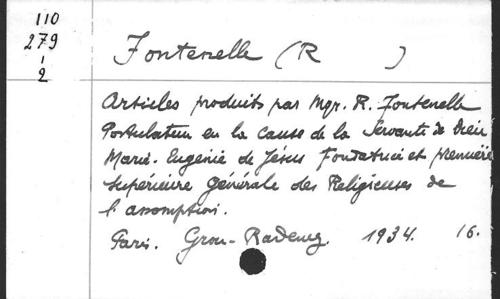 110
279
1
2
Fontenelle (R )
Articles produits par Mgr. R. Fontenelle
Postulateur en la cause de la Servante de Dieu
Marie-Eugénie de Jésus Fondatrice et première
Supérieure Générale des Religieuses de
l'assomption.
Paris. Grou-Radenez. 1934. 16.